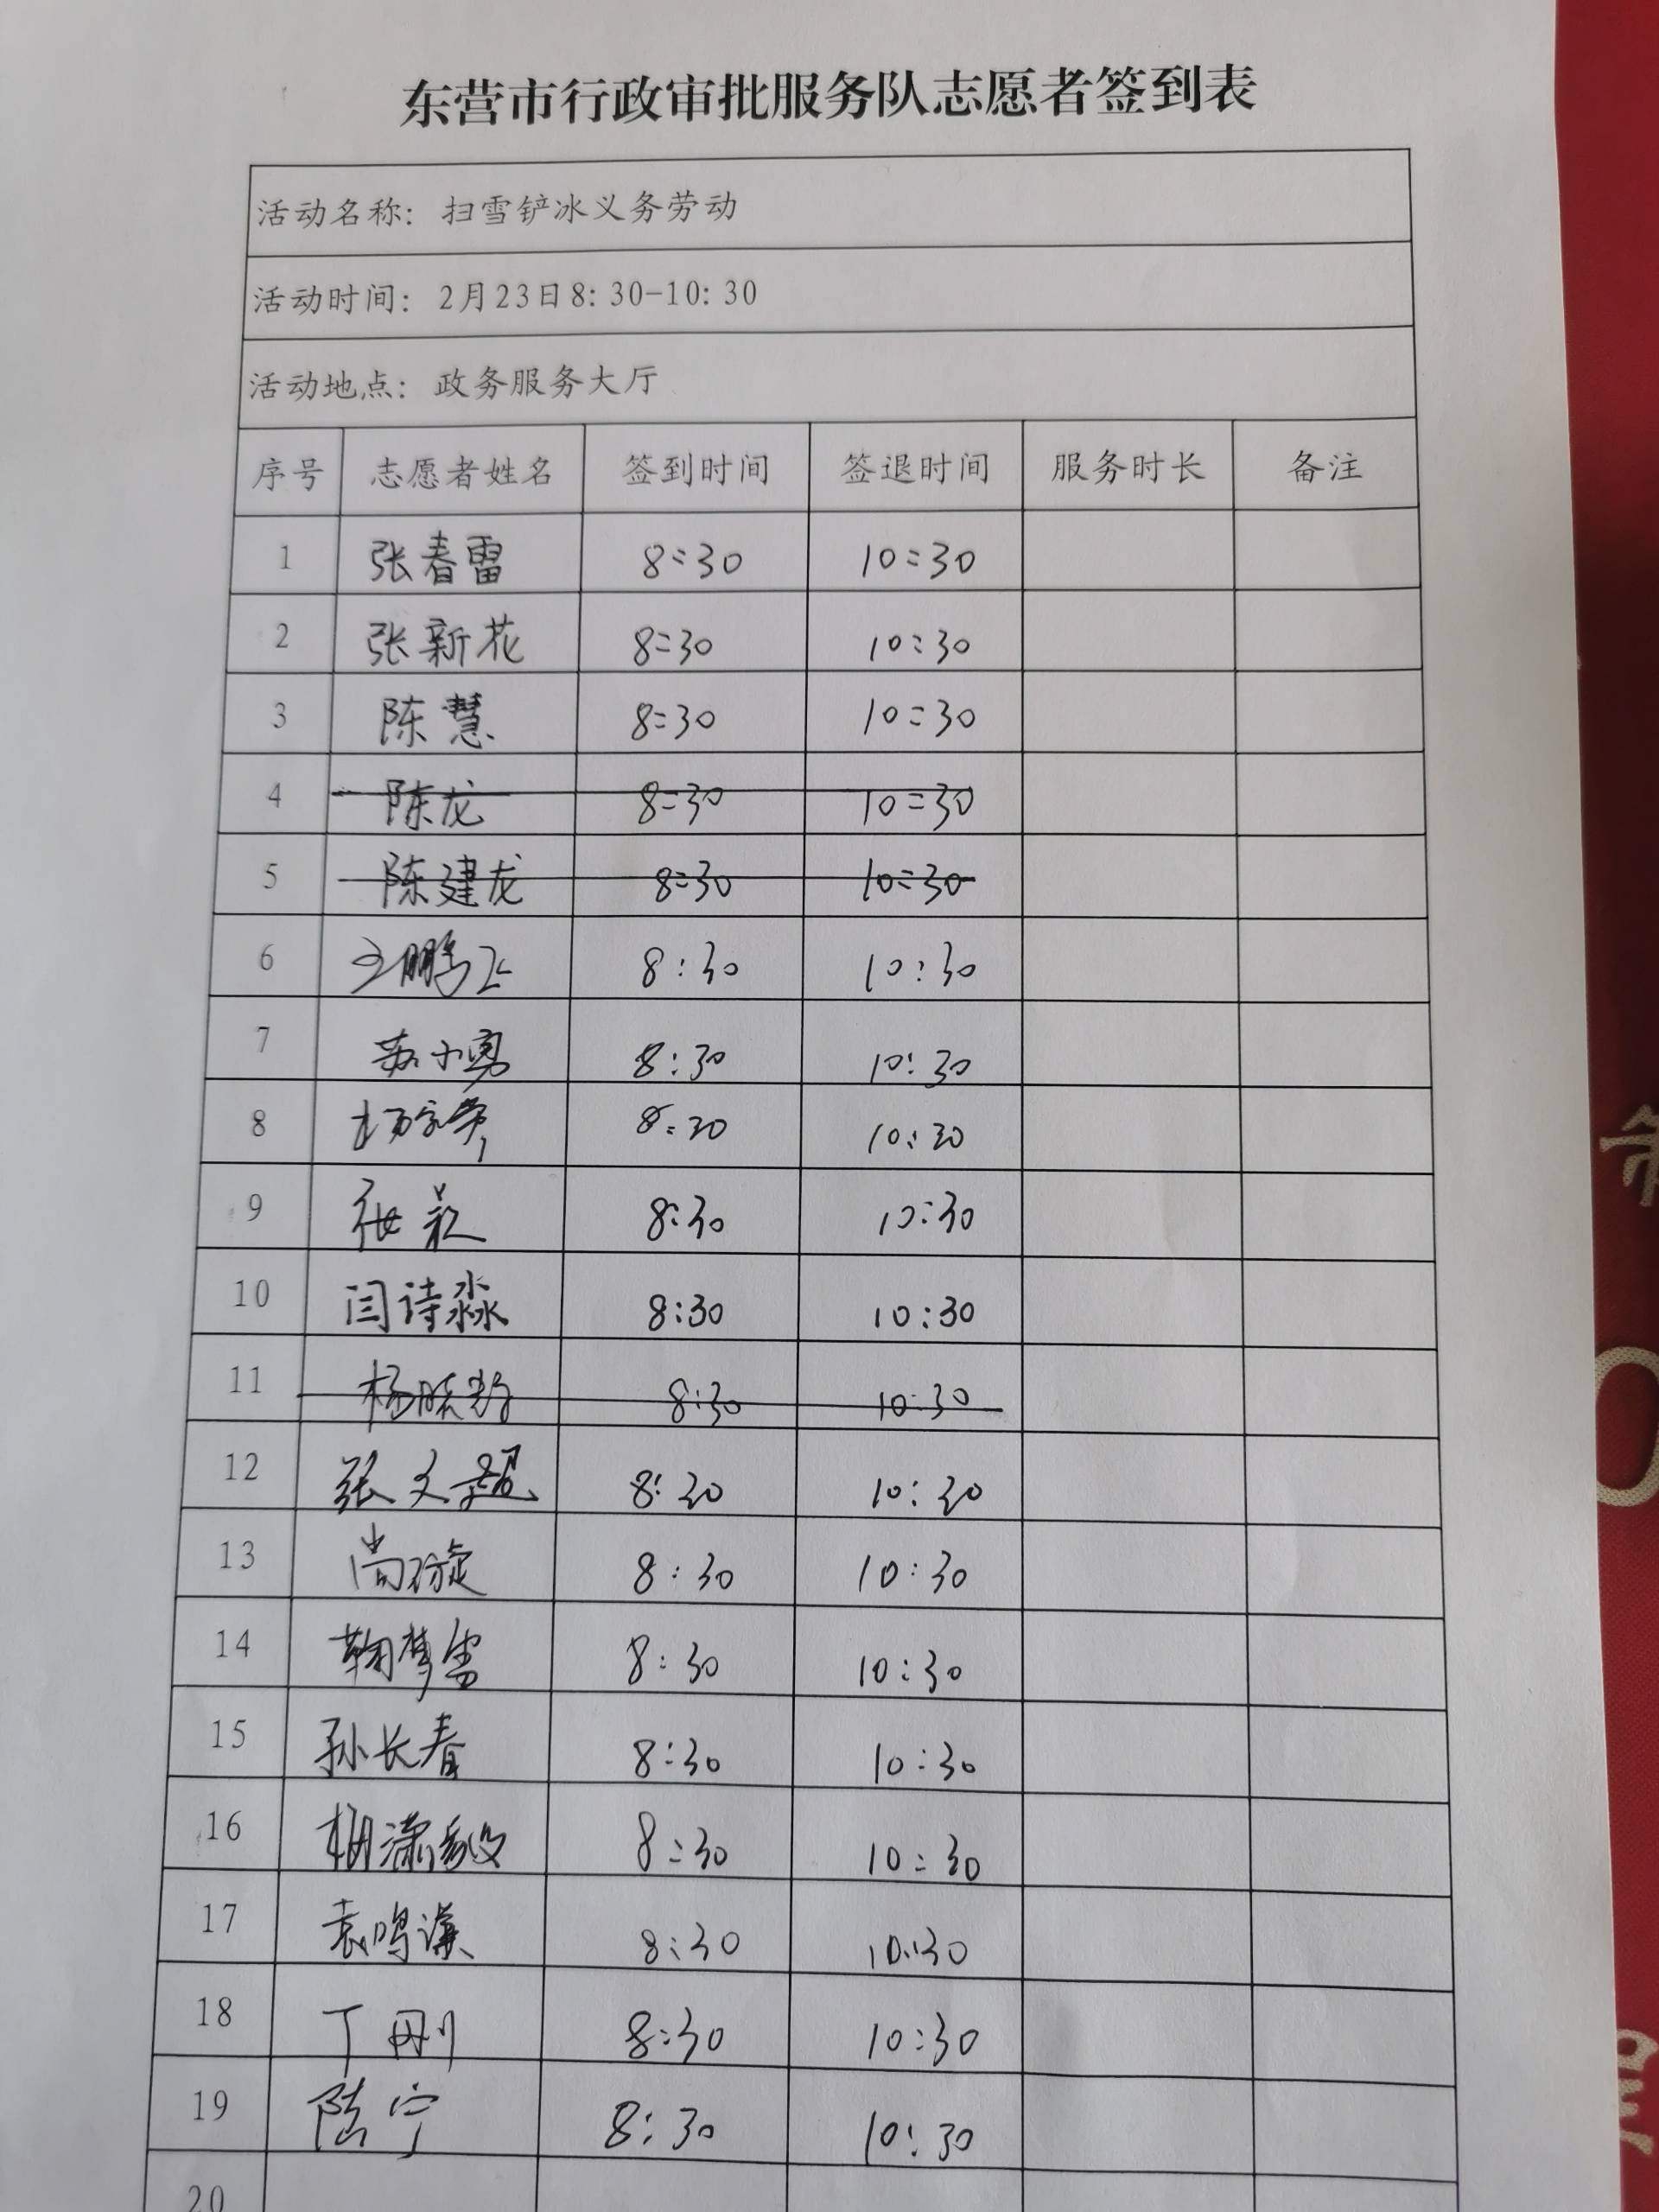 东营市行政审批服务队志愿者签到表
活动名称：扫雪铲冰义务劳动
活动时间：2月23日8：30-10：30
活动地点：政务服务大厅
序号 志愿者姓名 签到时间 签退时间 服务时长 备注
1 张春雷 8:30 10:30
2 张新花 8:30 10:30
3 陈慧 8:30 10:30
4 陈龙 8:30 10:30
5 陈建龙 8:30 10:30
6 王鹏飞 8:30 10:30
7 苏小勇 8:30 10:30
8 8:30 10:30
9 8:30 10:30
10 闫诗淼 8:30 10:30
11 8:30 10:30
12 张文超 8:30 10:30
13 尚璇 8:30 10:30
14 鞠梦雪 8:30 10:30
15 孙长春 8:30 10:30
16 8:30 10:30
17 袁鸣谦 8:30 10:30
18 丁刚 8:30 10:30
19 陆宁 8:30 10:30
20